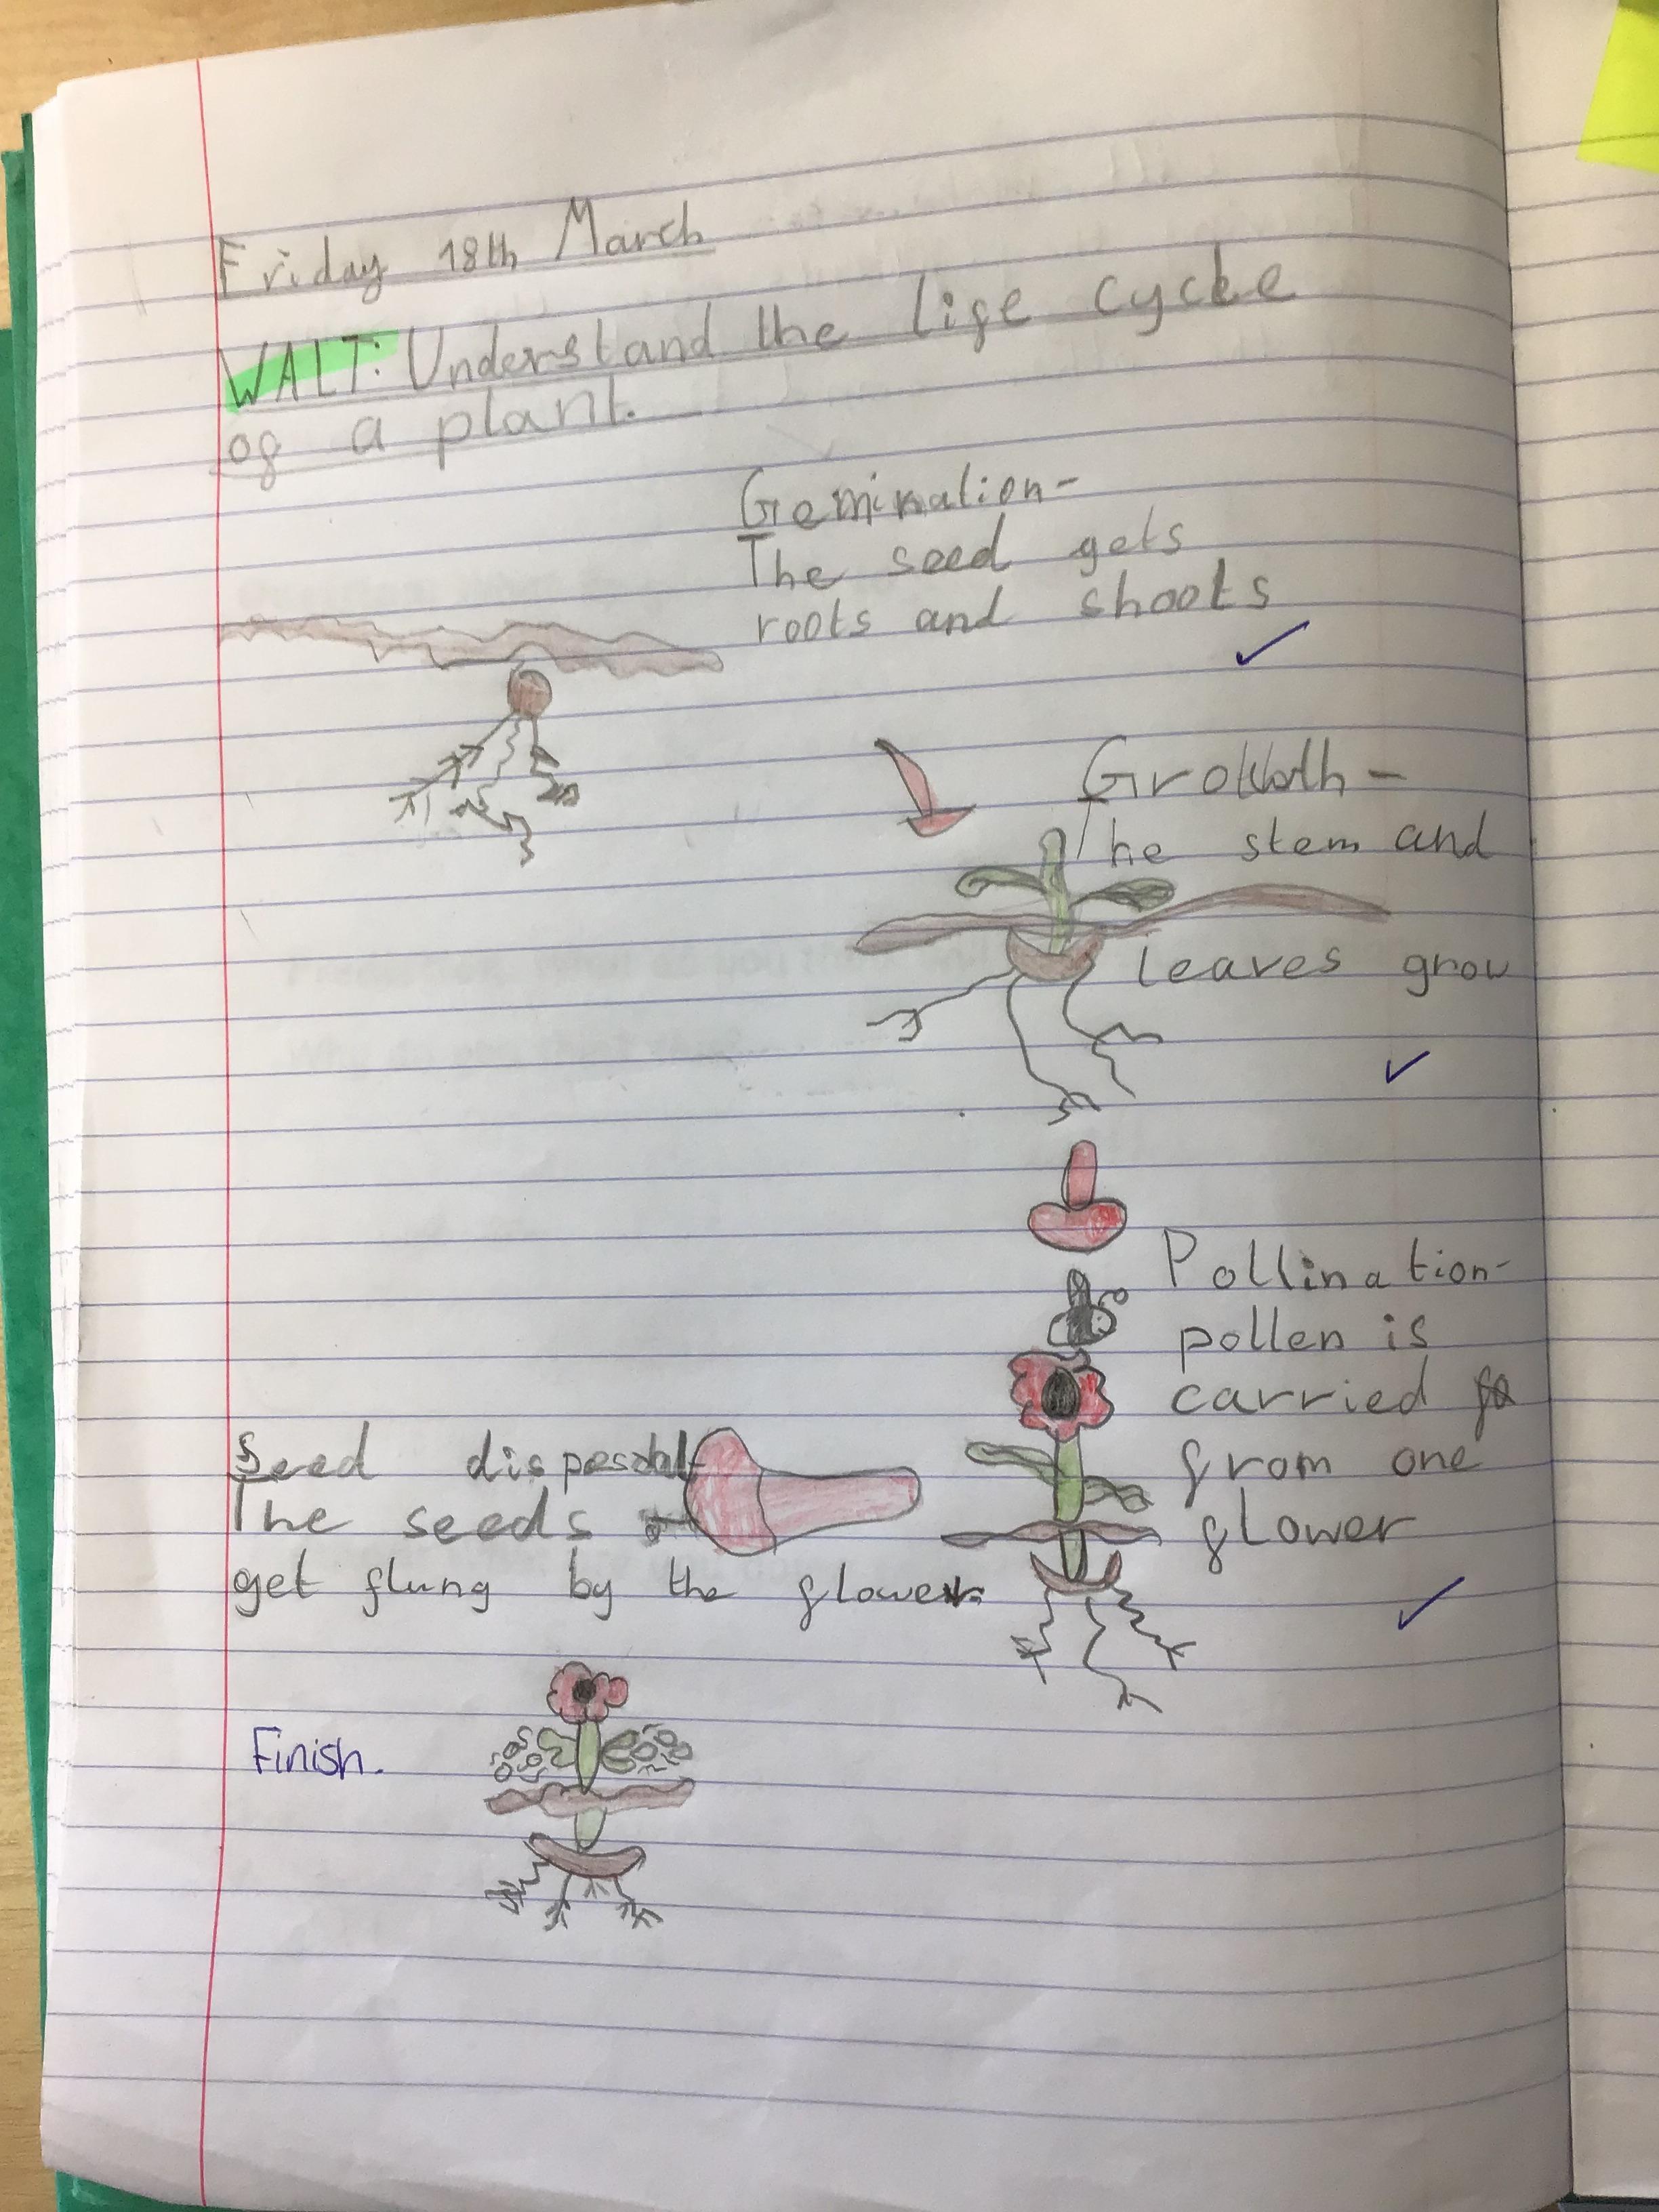 Friday 18th March
WALT: Understand the life cycle
of a plant.
Gemination-
The seed gets
roots and shoots
Growth-
The stem and
leaves grow
Pollination-
pollen is
carried
from one
flower
Seed disposal-
The seeds
get flung by the flower.
Finish.